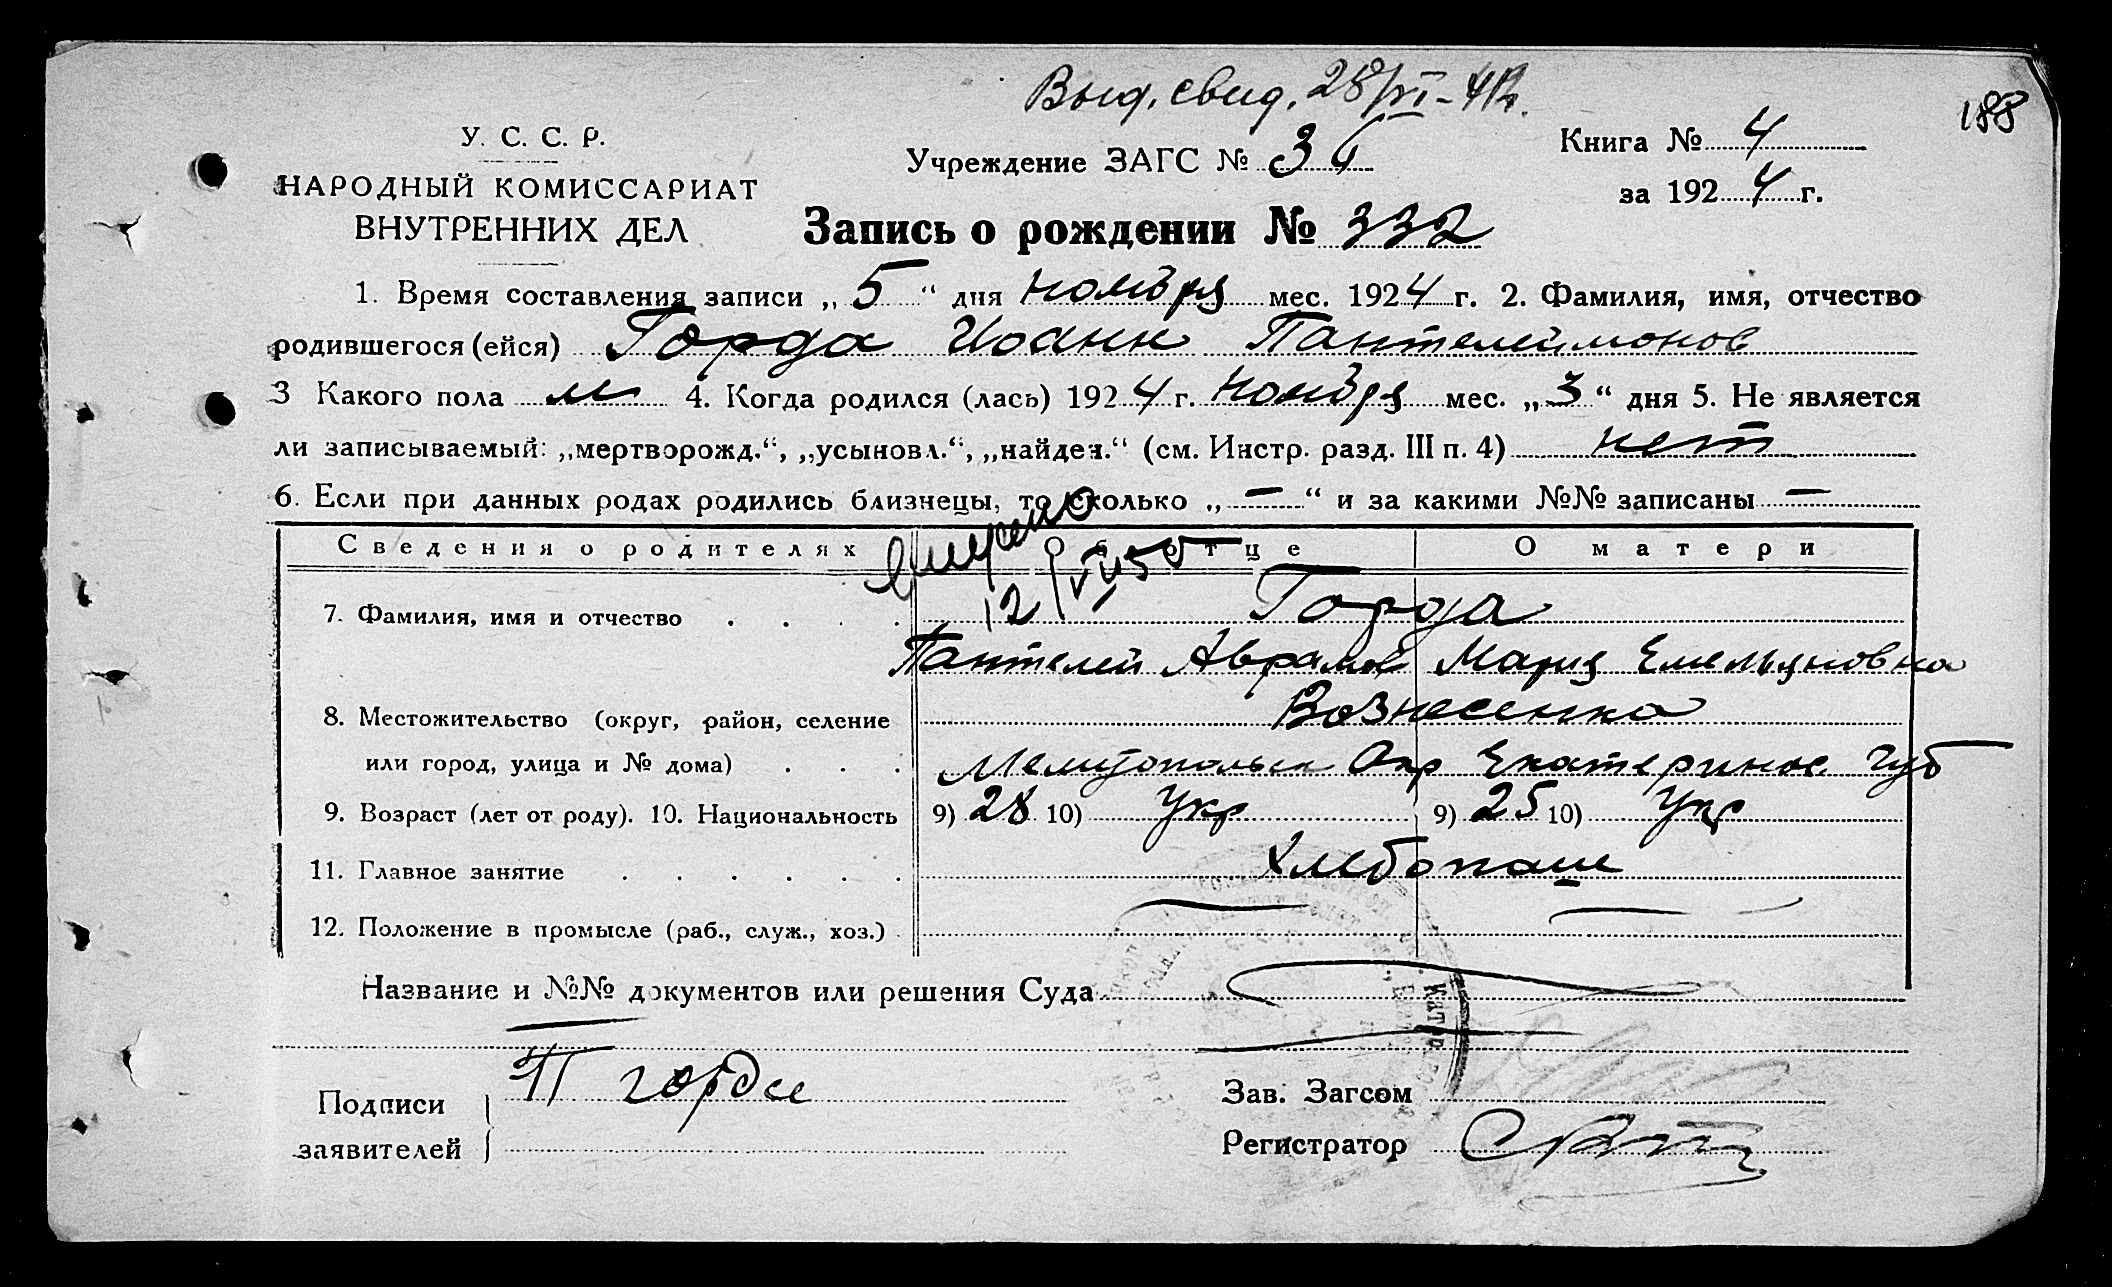 Выд. свид. 28/XI-41г.
188
У. С. С. Р.
НАРОДНЫЙ КОМИССАРИАТ
ВНУТРЕННИХ ДЕЛ
Учреждение ЗАГС №
Книга № 4
за 1924 г.
Запись о рождении № 332
1. Время составления записи „ 5 “ дня ноября мес. 1924 г. 2. Фамилия, имя, отчество
родившегося (ейся) Горда Иоанн Пантелеймонов
3 Какого пола м 4. Когда родился (лась) 1924 г. Ноября мес. „ 3 “ дня 5. Не является
ли записываемый: „мертворожд.“, „усыновл.“, „найден.“ (см. Инстр. разд. III п. 4) нет
6. Если при данных родах родились близнецы, то сколько „ — “ и за какими №№ записаны —
Сведения о родителях Об отце О матери
12/VII 55
7. Фамилия, имя и отчество Горда
Пантелей Аврамов Мария Емельяновна
8. Местожительство (округ, район, селение Вознесенка
или город, улица и № дома) Мелитопольск Окр Екатеринос. Губ
9. Возраст (лет от роду). 10. Национальность 9) 28 10) Укр 9) 25 10) Укр
11. Главное занятие Хлебопаше
12. Положение в промысле (раб., служ., хоз.) — —
Название и №№ документов или решения Суда
Подписи
заявителей
П горда
Зав. Загсом
Регистратор